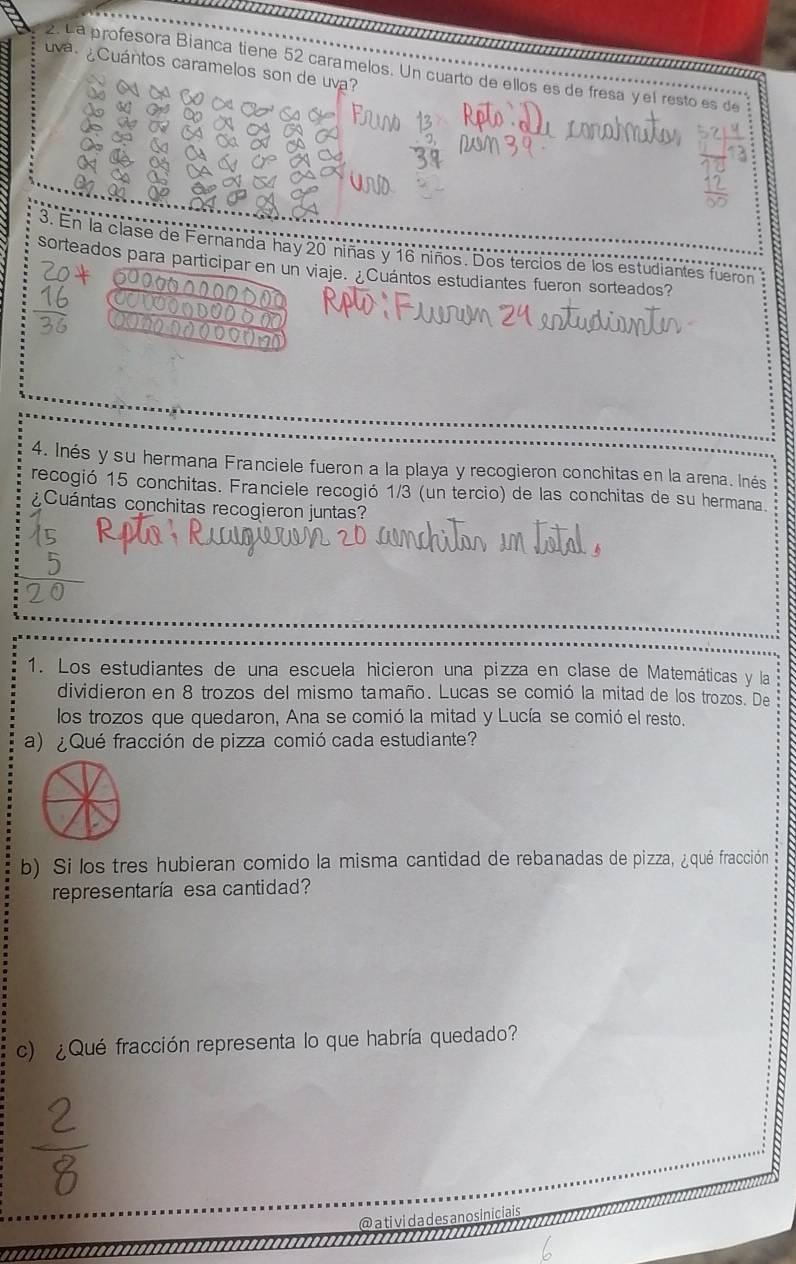 2. La profesora Bianca tiene 52 caramelos. Un cuarto de ellos es de fresa y el resto es de
uva. ¿Cuántos caramelos son de uva?
13
3
39
Rpto: De
son 39.
52 4
4 13
12
12
00
uva
3. En la clase de Fernanda hay 20 niñas y 16 niños. Dos tercios de los estudiantes fueron
sorteados para participar en un viaje. ¿Cuántos estudiantes fueron sorteados?
20 +
16
36
Rpto: Fueron 24 estudiantes
4. Inés y su hermana Franciele fueron a la playa y recogieron conchitas en la arena. Inés
recogió 15 conchitas. Franciele recogió 1/3 (un tercio) de las conchitas de su hermana.
¿Cuántas conchitas recogieron juntas?
1
15
5
20
Rpta: Recugieron 20 conchitas en total.
1. Los estudiantes de una escuela hicieron una pizza en clase de Matemáticas y la
dividieron en 8 trozos del mismo tamaño. Lucas se comió la mitad de los trozos. De
los trozos que quedaron, Ana se comió la mitad y Lucía se comió el resto.
a) ¿Qué fracción de pizza comió cada estudiante?
b) Si los tres hubieran comido la misma cantidad de rebanadas de pizza, ¿qué fracción
representaría esa cantidad?
c) ¿Qué fracción representa lo que habría quedado?
2
8
@atividadesanosiniciais
6